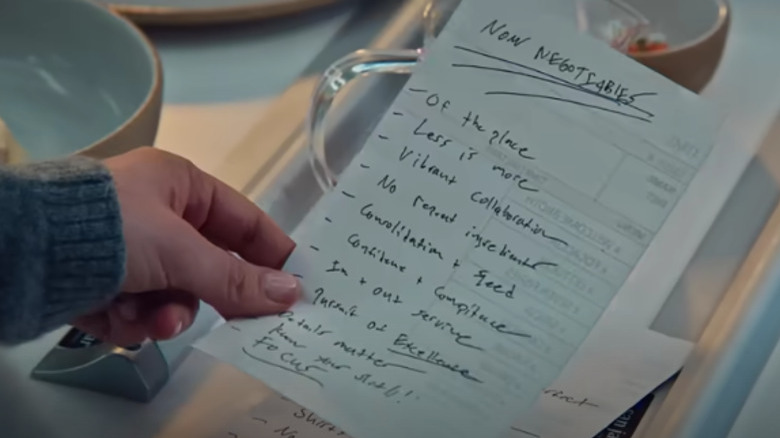 NON NEGOTIABLES
- Of the place
- Less is more
- Vibrant collaboration
- No repeat ingredients
- Consolitation + Speed
- Confidence + Competence
- In + out service
- Pursuit of Excellence
- Details matter
- know your shit!
- FOCUS